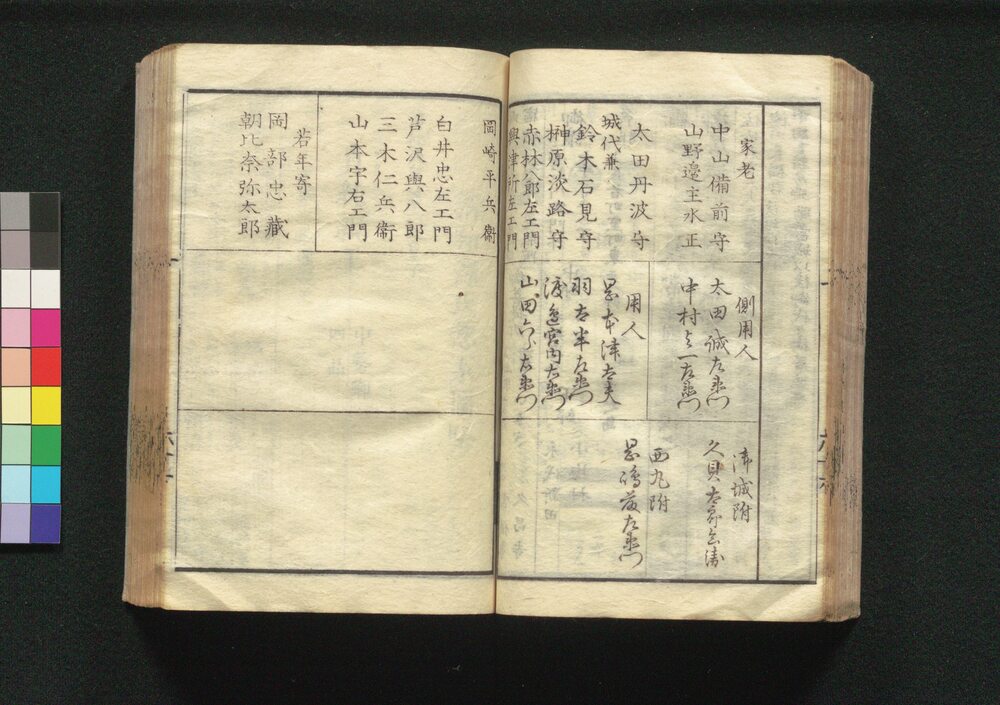 家老
中山備前守
山野邊主水正
太田丹波守
城代兼
鈴木石見守
榊原淡路守
赤林八郎左エ門
興津所左エ門
側用人
太田誠左衛門
中村与一左衛門
用人
岡本津太夫
羽太半左衛門
渡邉宮内左衛門
山田六郎左衛門
御城附
久貝太郎兵衛
西丸附
岡崎平兵衛
白井忠左エ門
芦沢與八郎
三木仁兵衛
山本宇右エ門
若年寄
岡部忠藏
朝比奈弥太郎